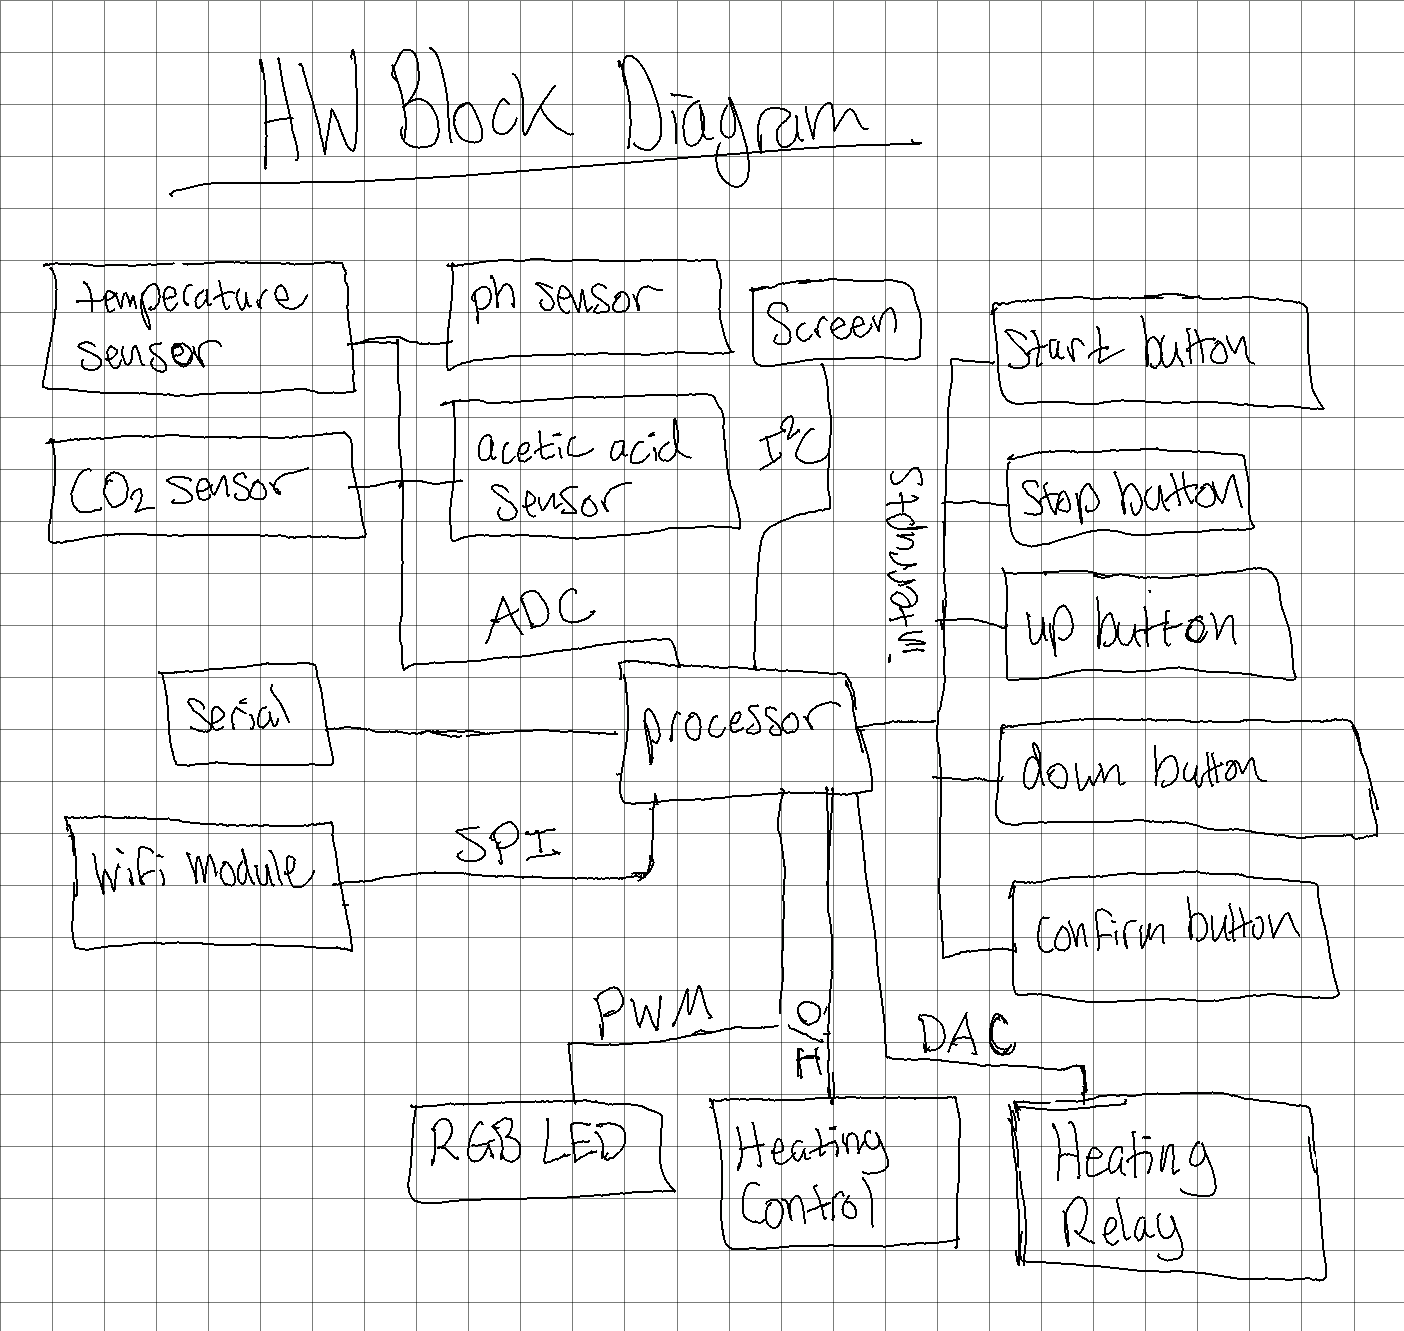 HW Block Diagram
temperature
sensor
ph sensor
Screen
Start button
CO2 sensor
acetic acid
sensor
I²C
interrupts
Stop button
up button
ADC
serial
processor
down button
wifi module
SPI
confirm button
PWM
I/O
DAC
RGB LED
Heating
Control
Heating
Relay